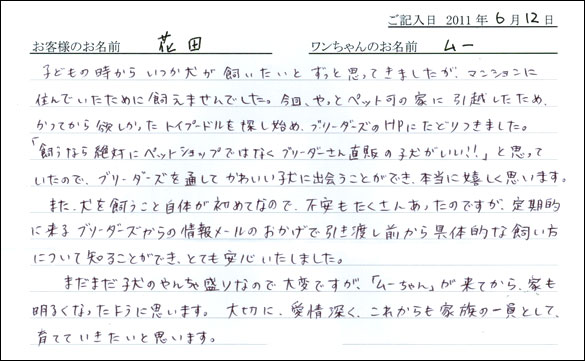 ご記入日 2011年6月12日
お客様のお名前 花田 ワンちゃんのお名前 ムー
子どもの時からいつか犬が飼いたいとずっと思ってきましたが、マンションに
住んでいたために飼えませんでした。今回、やっとペット可の家に引越したため、
かつてから欲しかったトイプードルを探し始め、ブリーダーズのHPにたどりつきました。
「飼うなら絶対にペットショップではなくブリーダーさん直販の子犬がいい!!」と思って
いたので、ブリーダーズを通してかわいい子犬に出会うことができ、本当に嬉しく思います。
また、犬を飼うこと自体が初めてなので、不安もたくさんあったのですが、定期的
に来るブリーダーズからの情報メールのおかげで引き渡し前から具体的な飼い方
について知ることができ、とても安心いたしました。
まだまだ子犬のやんちゃ盛りなので大変ですが、「ムーちゃん」が来てから、家も
明るくなったように思います。大切に、愛情深く、これからも家族の一員として、
育てていきたいと思います。